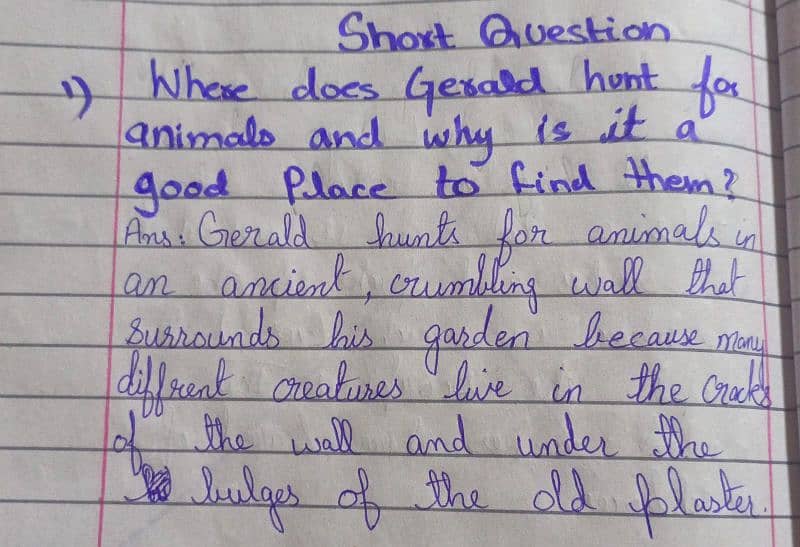 Short Question
1) Where does Gerald hunt for
animals and why is it a
good Place to find them?
Ans: Gerald hunts for animals in
an ancient, crumbling wall that
Surrounds his garden because many
diffrent creatures live in the Cracks
of the wall and under the
bulges of the old plaster.